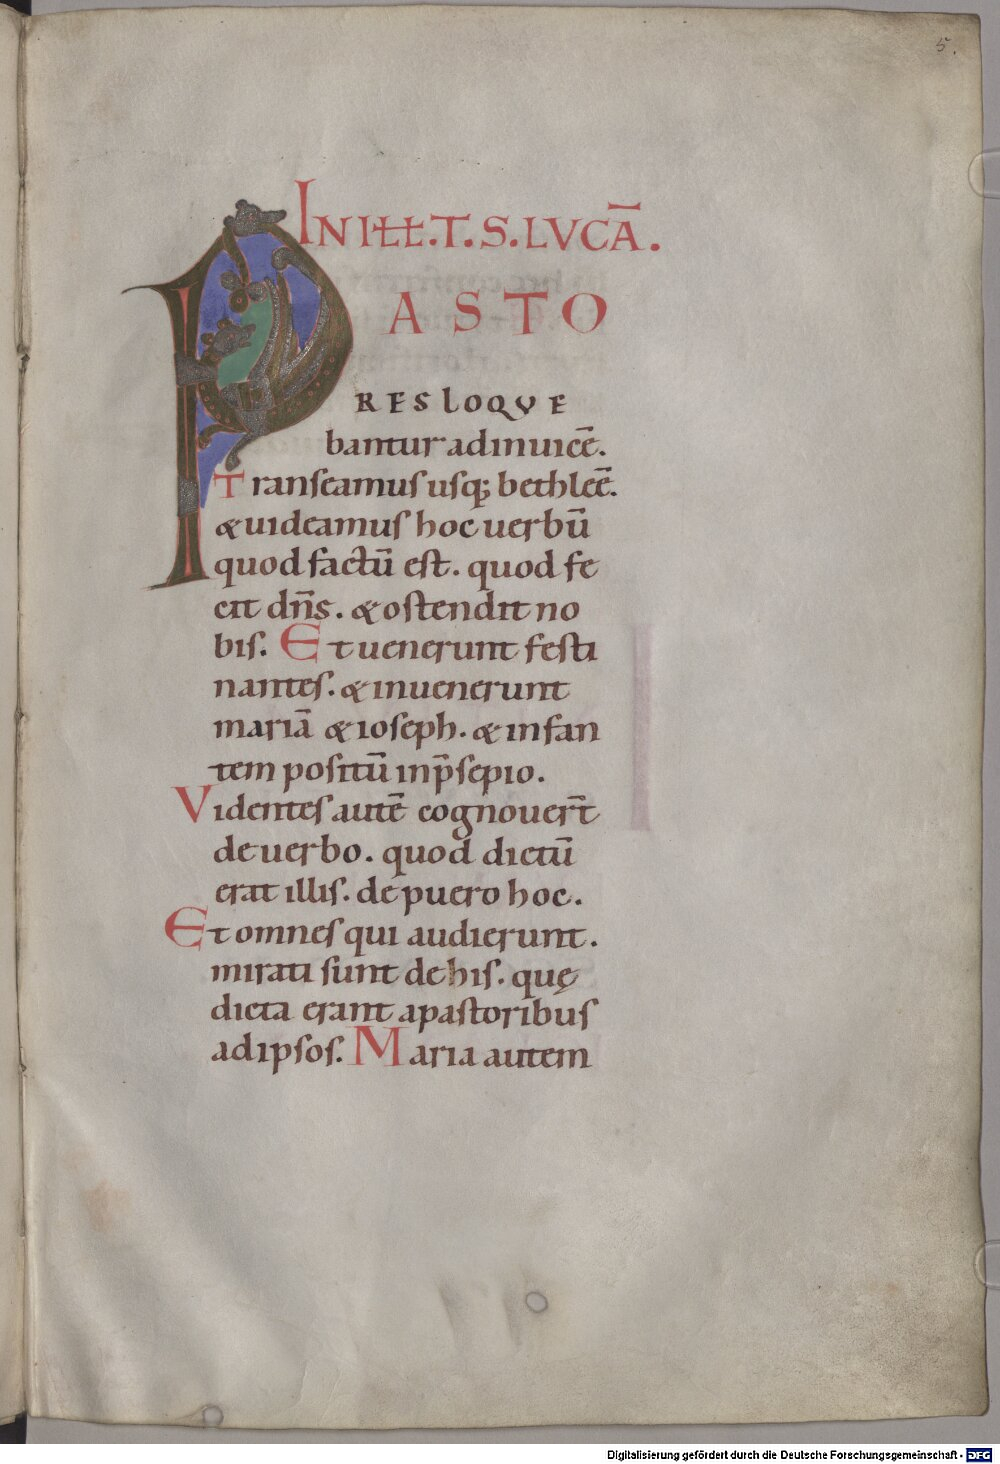 5.
IN ILL̵. T. S. LVCĀ.
PASTO
RES LOQVE
bantur adinuicē.
Transeamus usq; bethleē.
& uideamus hoc uerbū
quod factū est. quod fe
cit dn̄s. & ostendit no
bis. Et uenerunt festi
nantes. & inuenerunt
mariā & ioseph. & infan
tem positū inp̄sepio.
Videntes autē cognouer̄t
de uerbo. quod dictū
erat illis. de puero hoc.
Et omnes qui audierunt.
mirati sunt de his. quę
dicta erant a pastoribus
ad ipsos. Maria autem
Digitalisierung gefördert durch die Deutsche Forschungsgemeinschaft - DFG